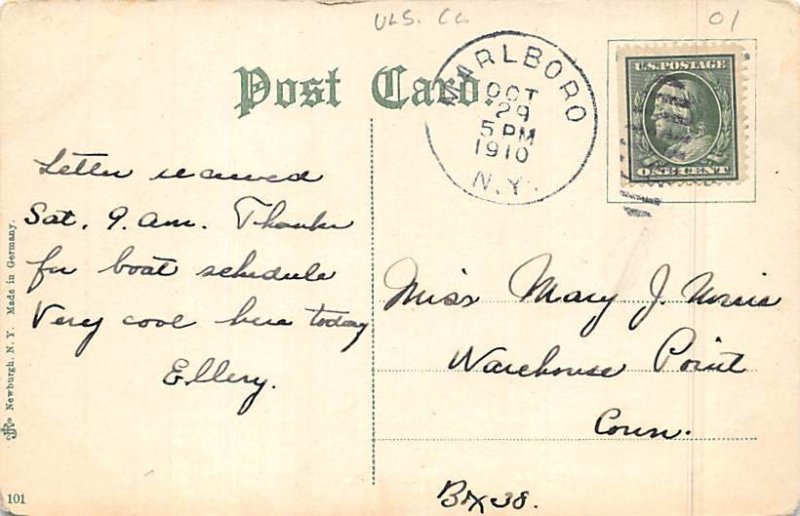 ULS. Co
01
Post Card
MARLBORO
OCT
29
5 PM
1910
N.Y.
U.S. POSTAGE
ONE CENT
Letter received
Sat. 9. am. Thanks
for boat schedule
Very cool here today
Ellery.
Miss Mary J. Norris
Warehouse Point
Conn.
Box 38.
Newburgh, N. Y. Made in Germany.
101